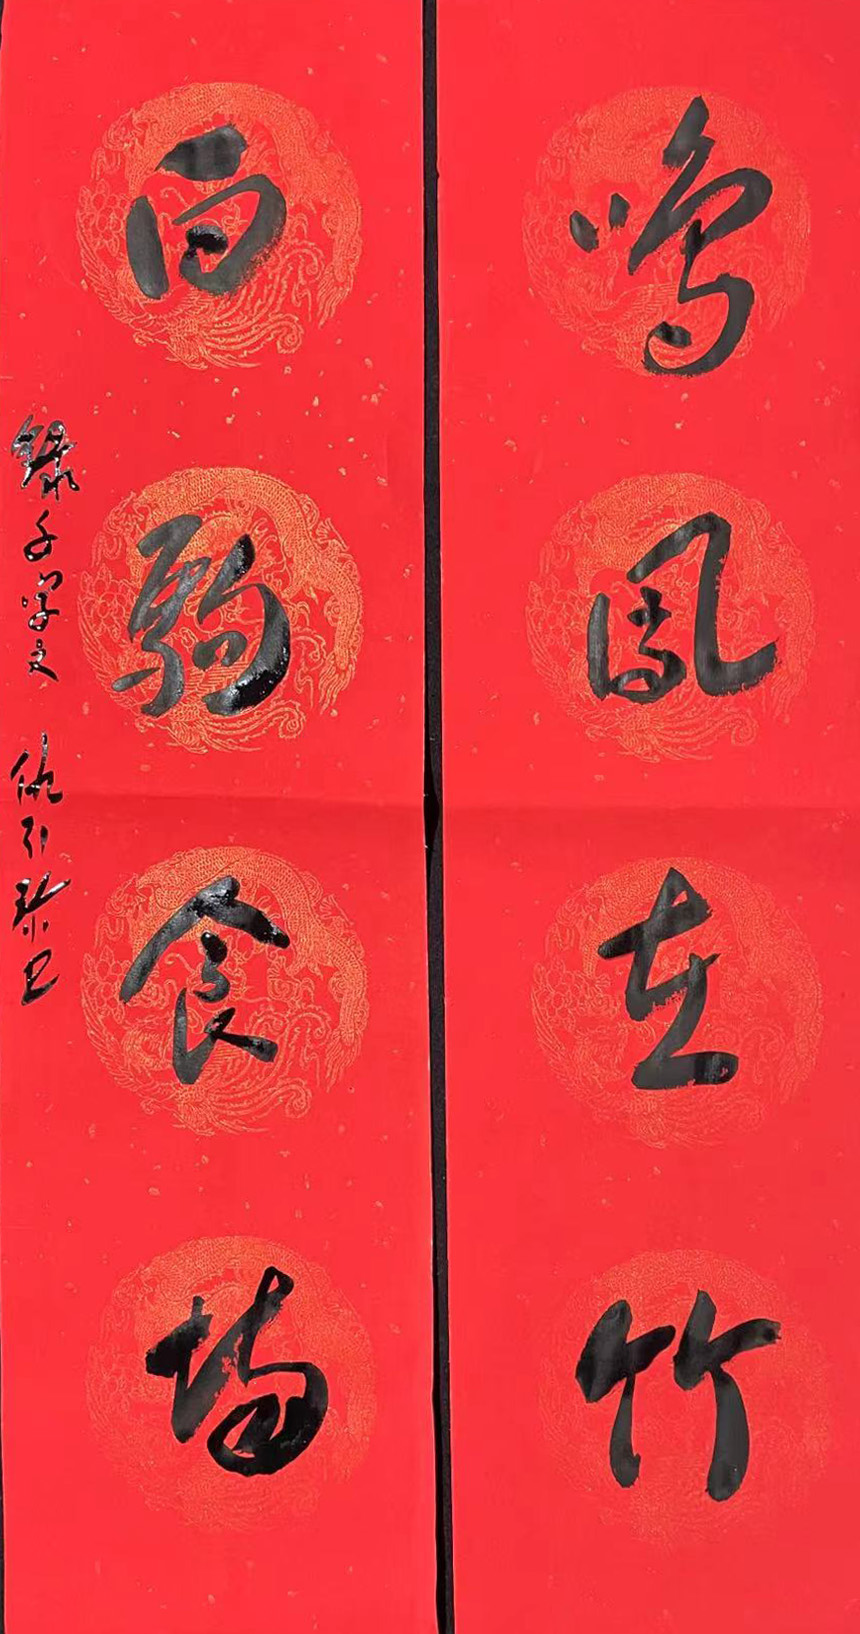 鸣凤在竹
白驹食场
录千字文